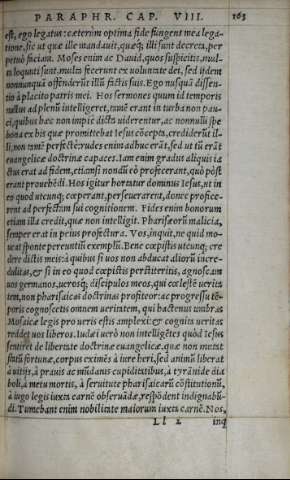 PARAPHR. CAP. VIII. 163
est, ego legatus: cæterùm optima fide fungent mea lega-
tione, sic ut quæ ille mandauit, quæq; illi sunt decreta, per
petuò faciam. Moses enim ac Dauid, quos suspicitis, mul-
ta loquuti sunt, multa fecerunt ex uoluntate dei, sed ijdem
nonnunquã offenderũt illũ factis suis. Ego nusquã dissen-
tio à placito patris mei. Hos sermones quum id temporis
nullus ad plenũ intelligeret, tamẽ erant in turba non pau-
ci, quibus hæc non impie dicta uiderentur, ac nonnulli spe
bona ex his quæ promittebat Iesus cõcepta, crediderũt il-
li, non tamẽ perfectè: rudes enim adhuc erãt, sed ut tũ erãt
euangelicæ doctrinæ capaces. Iam enim gradus aliquis ia
ctus erat ad fidem, etiamsi nondũ eò profecerant, quò põst
erant prouehẽdi. Hos igitur hortatur dominus Iesus, ut in
eo quod utcunq; cœperant, perseuerarent, donec profice-
rent ad perfectam sui cognitionem. Fides enim bonorum
etiam illa credit, quæ non intelligit. Pharisæorũ malicia,
semper erat in peius profectura. Vos, inquit, ne quid mo-
ueat sponte pereuntiũ exemplũ. Bene cœpistis utcunq; cre
dere dictis meis: à quibus si uos non abducat aliorũ incre-
dulitas, & si in eo quod cœpistis perstiteritis, agnoscam
uos germanos, uerosq; discipulos meos, qui cœlestẽ uerita
tem, non pharisaicas doctrinas profiteor: ac progressu tẽ-
poris cognoscetis omnem ueritatem, qui hactenus umbras
Mosaicæ legis pro ueris estis amplexi: & cognita ueritas
reddet uos liberos. Iudæi uerò non intelligẽtes quòd Iesus
sentiret de libertate doctrinæ euangelicæ, quæ non mutat
statũ fortunæ, corpus eximẽs à iure heri, sed animũ liberat
à uitijs, à prauis ac mũdanis cupiditatibus, à tyrãnide dia
boli, à metu mortis, à seruitute pharisaicarũ cõstitutionũ,
à iugo legis iuxta carnẽ obseruãdæ, respõdent indignabũ-
di. Tumebant enim nobilitate maiorum iuxta carnẽ. Nos,
Ll 2 inq